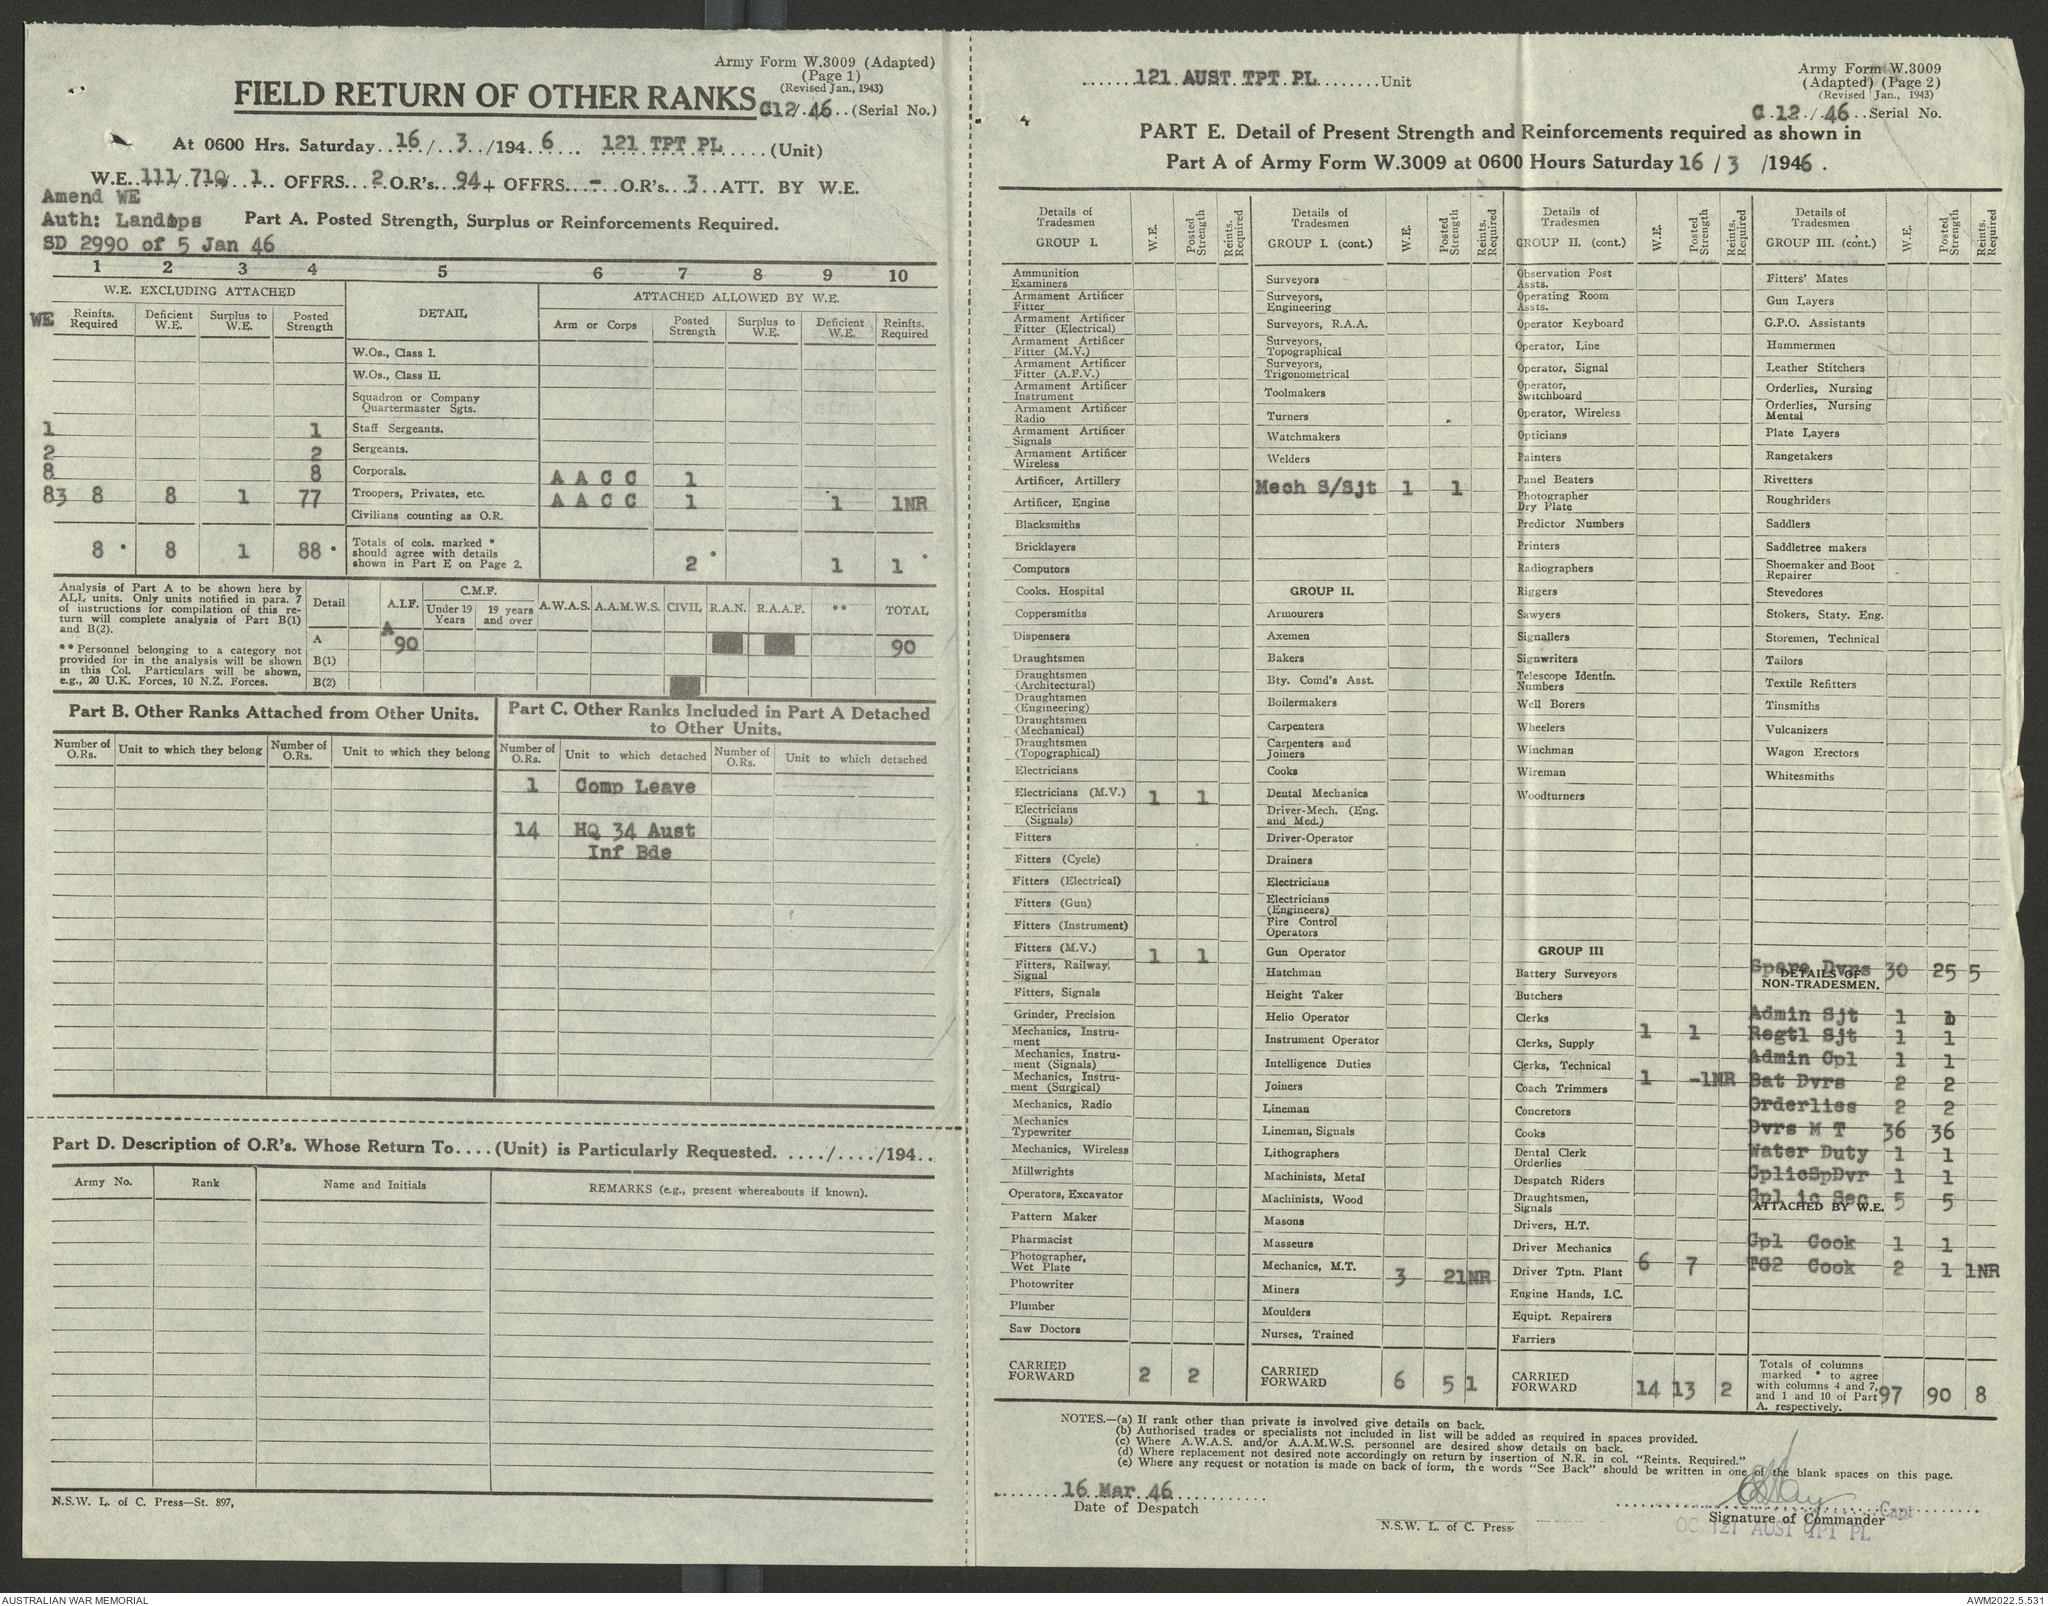 Army Form W.3009 (Adapted)
(Page 1)
(Revised Jan., 1943)
FIELD RETURN OF OTHER RANKS
C12/.46..(Serial No.)
At 0600 Hrs. Saturday..16/..3./194.6.... 121 TPT PL......(Unit)
W.E..111/.710/.1.. OFFRS...2.O.R's..94+ OFFRS..-..O.R's..3..ATT. BY W.E.
Amend WE
Auth: Landops
SD 2990 of 5 Jan 46
Part A. Posted Strength, Surplus or Reinforcements Required.
1 2 3 4 5 6 7 8 9 10
W.E. EXCLUDING ATTACHED
DETAIL
ATTACHED ALLOWED BY W.E.
WE
Reinfts. Required
Deficient W.E.
Surplus to W.E.
Posted Strength
Arm or Corps
Posted Strength
Surplus to W.E.
Deficient W.E.
Reinfts. Required
W.Os., Class I.
W.Os., Class II.
Squadron or Company
Quartermaster Sgts.
1 1 Staff Sergeants.
2 2 Sergeants.
8 8 Corporals. A A C C 1
83 8 8 1 77 Troopers, Privates, etc. A A C C 1 1 1NR
Civilians counting as O.R.
8 * 8 1 88 * Totals of cols. marked *
should agree with details
shown in Part E on Page 2. 2 * 1 1 *
Analysis of Part A to be shown here by
ALL units. Only units notified in para. 7
of instructions for compilation of this re-
turn will complete analysis of Part B(1)
and B(2).
** Personnel belonging to a category not
provided for in the analysis will be shown
in this Col. Particulars will be shown,
e.g., 20 U.K. Forces, 10 N.Z. Forces.
Detail A.I.F. C.M.F. A.W.A.S. A.A.M.W.S. CIVIL R.A.N. R.A.A.F. ** TOTAL
Under 19 Years
19 years and over
A A 90 90
B(1)
B(2)
Part B. Other Ranks Attached from Other Units.
Number of O.Rs. Unit to which they belong Number of O.Rs. Unit to which they belong
Part C. Other Ranks Included in Part A Detached
to Other Units.
Number of O.Rs. Unit to which detached Number of O.Rs. Unit to which detached
1 Comp Leave
14 HQ 34 Aust
Inf Bde
Part D. Description of O.R's. Whose Return To....(Unit) is Particularly Requested. ...../..../194..
Army No. Rank Name and Initials REMARKS (e.g., present whereabouts if known).
N.S.W. L. of C. Press—St. 897,
......121 AUST TPT PL........Unit
Army Form W.3009
(Adapted) (Page 2)
(Revised Jan., 1943)
C.12./.46..Serial No.
PART E. Detail of Present Strength and Reinforcements required as shown in
Part A of Army Form W.3009 at 0600 Hours Saturday 16/3 /1946.
Details of Tradesmen GROUP I. W.E. Posted Strength Reints. Required
Ammunition Examiners
Armament Artificer Fitter
Armament Artificer Fitter (Electrical)
Armament Artificer Fitter (M.V.)
Armament Artificer Fitter (A.F.V.)
Armament Artificer Instrument
Armament Artificer Radio
Armament Artificer Signals
Armament Artificer Wireless
Artificer, Artillery
Artificer, Engine
Blacksmiths
Bricklayers
Computors
Cooks. Hospital
Coppersmiths
Dispensers
Draughtsmen
Draughtsmen (Architectural)
Draughtsmen (Engineering)
Draughtsmen (Mechanical)
Draughtsmen (Topographical)
Electricians
Electricians (M.V.) 1 1
Electricians (Signals)
Fitters
Fitters (Cycle)
Fitters (Electrical)
Fitters (Gun)
Fitters (Instrument)
Fitters (M.V.) 1 1
Fitters, Railway, Signal
Fitters, Signals
Grinder, Precision
Mechanics, Instru- ment
Mechanics, Instru- ment (Signals)
Mechanics, Instru- ment (Surgical)
Mechanics, Radio
Mechanics Typewriter
Mechanics, Wireless
Millwrights
Operators, Excavator
Pattern Maker
Pharmacist
Photographer, Wet Plate
Photowriter
Plumber
Saw Doctors
CARRIED FORWARD 2 2
Details of Tradesmen GROUP I. (cont.) W.E. Posted Strength Reints. Required
Surveyors
Surveyors, Engineering
Surveyors, R.A.A.
Surveyors, Topographical
Surveyors, Trigonometrical
Toolmakers
Turners
Watchmakers
Welders
Mech S/Sjt 1 1
GROUP II.
Armourers
Axemen
Bakers
Bty. Comd's Asst.
Boilermakers
Carpenters
Carpenters and Joiners
Cooks
Dental Mechanics
Driver-Mech. (Eng. and Med.)
Driver-Operator
Drainers
Electricians
Electricians (Engineers)
Fire Control Operators
Gun Operator
Hatchman
Height Taker
Helio Operator
Instrument Operator
Intelligence Duties
Joiners
Lineman
Lineman, Signals
Lithographers
Machinists, Metal
Machinists, Wood
Masons
Masseurs
Mechanics, M.T. 3 2 1NR
Miners
Moulders
Nurses, Trained
CARRIED FORWARD 6 5 1
Details of Tradesmen GROUP II. (cont.) W.E. Posted Strength Reints. Required
Observation Post Assts.
Operating Room Assts.
Operator Keyboard
Operator, Line
Operator, Signal
Operator, Switchboard
Operator, Wireless
Opticians
Painters
Panel Beaters
Photographer Dry Plate
Predictor Numbers
Printers
Radiographers
Riggers
Sawyers
Signallers
Signwriters
Telescope Identfn. Numbers
Well Borers
Wheelers
Winchman
Wireman
Woodturners
GROUP III
Battery Surveyors
Butchers
Clerks 1 1
Clerks, Supply
Clerks, Technical 1 - 1NR
Coach Trimmers
Concretors
Cooks
Dental Clerk Orderlies
Despatch Riders
Draughtsmen, Signals
Drivers, H.T.
Driver Mechanics 6 7
Driver Tptn. Plant
Engine Hands, I.C.
Equipt. Repairers
Farriers
CARRIED FORWARD 14 13 2
Details of Tradesmen GROUP III. (cont.) W.E. Posted Strength Reints. Required
Fitters' Mates
Gun Layers
G.P.O. Assistants
Hammermen
Leather Stitchers
Orderlies, Nursing
Orderlies, Nursing Mental
Plate Layers
Rangetakers
Rivetters
Roughriders
Saddlers
Saddletree makers
Shoemaker and Boot Repairer
Stevedores
Stokers, Staty. Eng.
Storemen, Technical
Tailors
Textile Refitters
Tinsmiths
Vulcanizers
Wagon Erectors
Whitesmiths
Spare Dvrs 30 25 5
DETAILS OF NON-TRADESMEN.
Admin Sjt 1 1
Regtl Sjt 1 1
Admin Cpl 1 1
Bat Dvrs 2 2
Orderlies 2 2
Dvrs M T 36 36
Water Duty 1 1
CplicSpDvr 1 1
Cpl ic Sec 5 5
ATTACHED BY W.E.
Cpl Cook 1 1
TG2 Cook 2 1 1NR
Totals of columns
marked * to agree
with columns 4 and 7,
and 1 and 10 of Part
A. respectively. 97 90 8
NOTES.—(a) If rank other than private is involved give details on back.
(b) Authorised trades or specialists not included in list will be added as required in spaces provided.
(c) Where A.W.A.S. and/or A.A.M.W.S. personnel are desired show details on back.
(d) Where replacement not desired note accordingly on return by insertion of N.R. in col. "Reints. Required."
(e) Where any request or notation is made on back of form, the words "See Back" should be written in one of the blank spaces on this page.
16 Mar 46
Date of Despatch
N.S.W. L. of C. Press·
Capt
Signature of Commander
OC 121 AUST TPT PL
AUSTRALIAN WAR MEMORIAL
AWM2022.5.531